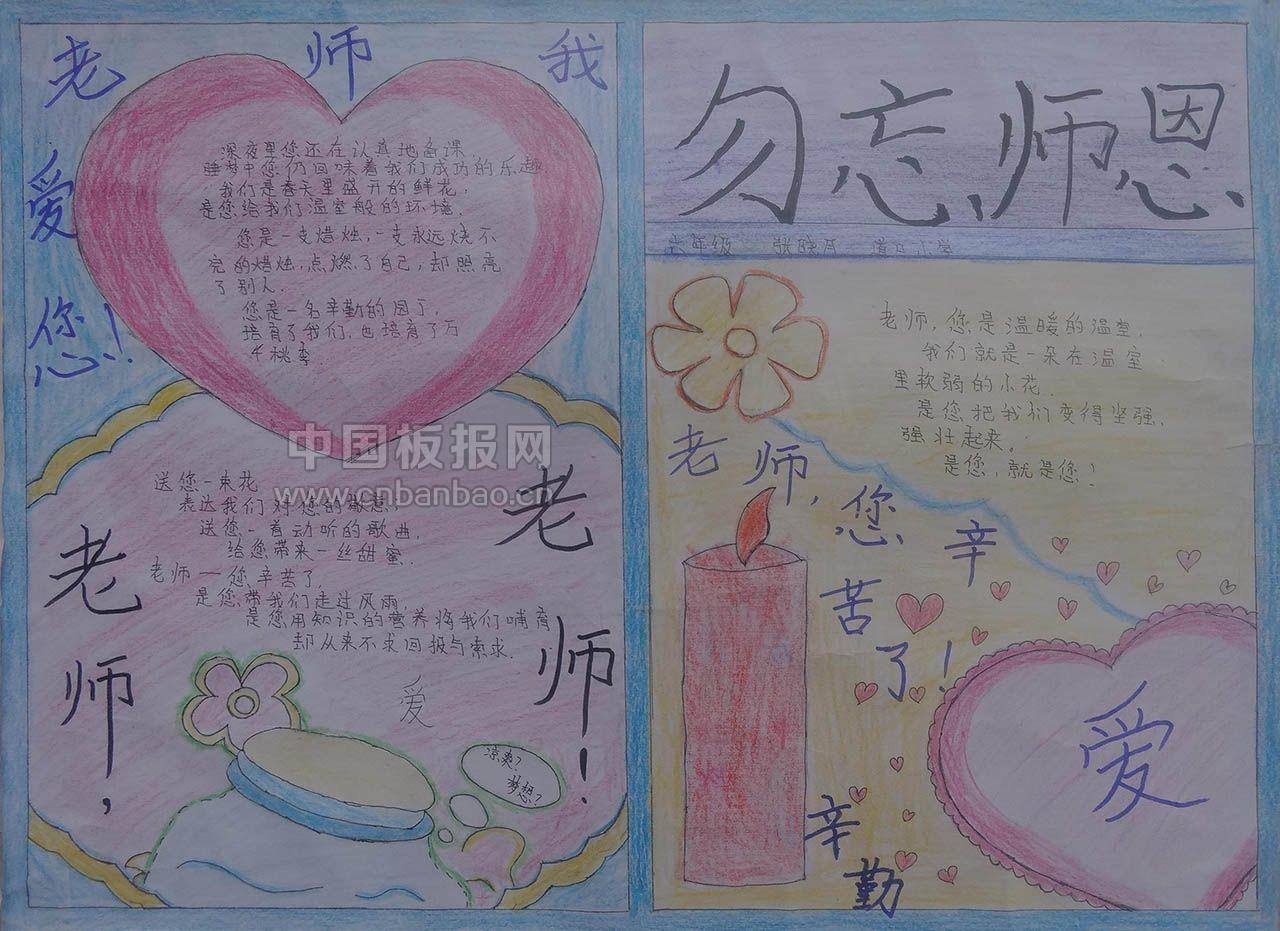 老师我爱您!
深夜里您还在认真地备课
睡梦中您仍回味着我们成功的乐趣
我们是春天里盛开的鲜花,
是您给我们温室般的环境.
您是一支蜡烛,一支永远烧不
完的蜡烛,点燃了自己,却照亮
了别人.
您是一名辛勤的园丁,
培育了我们,也培育了万
千桃李
中国板报网
www.cnbanbao.cn
送您一束花
表达我们对您的敬意,
送您一首动听的歌曲,
给您带来一丝甜蜜.
老师——您辛苦了,
是您带我们走过风雨,
是您用知识的营养将我们哺育
却从来不求回报与索求.
爱
老师,
老师!
凉爽?
梦想?
勿忘师恩
六年级 张晓月 道口小学
老师,您是温暖的温室,
我们就是一朵在温室
里软弱的小花.
是您把我们变得坚强,
强壮起来.
是您,就是您!
老师,您辛苦了!
爱
辛勤